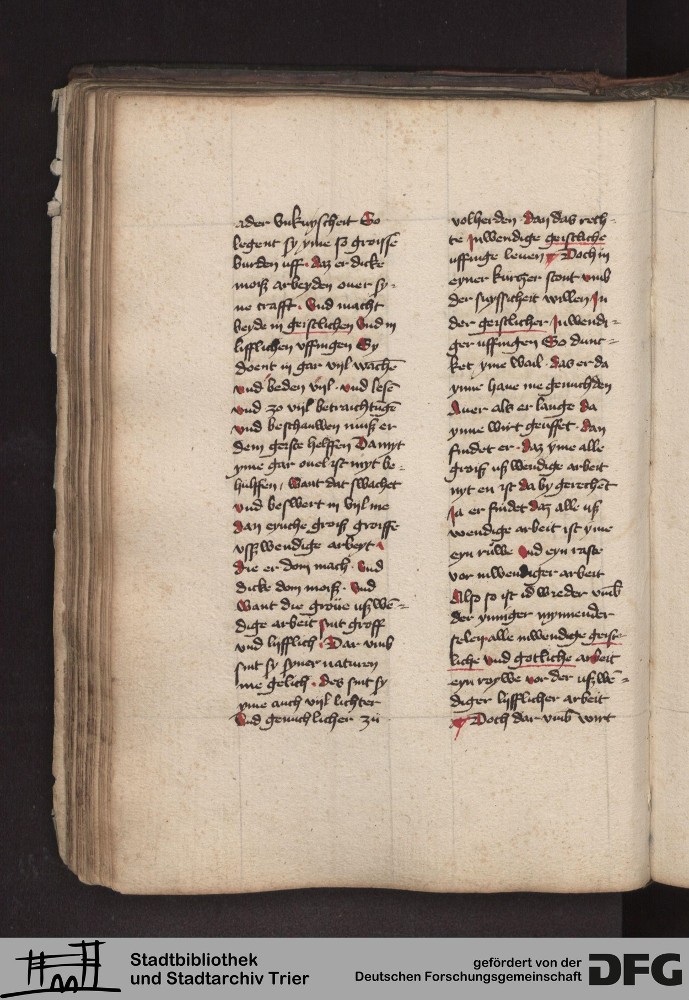 ader vnkuyscheit So
legent sy yme so groisse
burden uff · daz er dicke
moiß arbeyden over sy-
ne crafft · vnd macht
beyde in geistlichen vnd in
lifflichen vffingen Sy
doent in gar vijl wachē
vnd beden vijl · vnd lesē
vnd zo vijl betrachtūgē
vnd beschauwen muiß er
dem geiste helffen Damyt
yme gar ouel ist myt be-
hulffen / want dat swachet
vnd beswert in vijl me
dan eynche groiß groisse
vsswendige arbeyt ·
die er dom mach · vnd
dicke dom moiß · vnd
want die groue ußwē-
dige arbeit sint groff
vnd lijfflich · Dar vmb
sint sy syner naturen
me gelich · des sint sy
yme auch vijl lichter
vnd gemchlicher zu
volherden · dan das rech-
te Inwendige geistliche
uffinge leuen Doch in
eyner kurtzer stont vmb
der suyssicheit willen In
der geistlicher Inwendi-
ger uffingen So dunc-
ket yme wail · das er da
ynne haue me gemchden
Auer als er lange da
ynne wirt geuffet · dan
findet er · daz yme alle
groiß ußwendige arbeit
nyt en ist da by gerechēt
Ja er findet daz alle uß
wendige arbeit ist yme
eyn ruwe vnd eyn raste
vor inwendiger arbeit
Also so ist id wreder vmb
der ynniger mynnender
selen alle inwendige geist-
liche vnd gotliche arbeit
eyn roywe vor der ußwē-
diger lijfflicher arbeit
Doch dar vmb wirt
Stadtbibliothek
und Stadtarchiv Trier
gefördert von der
Deutschen Forschungsgemeinschaft
DFG